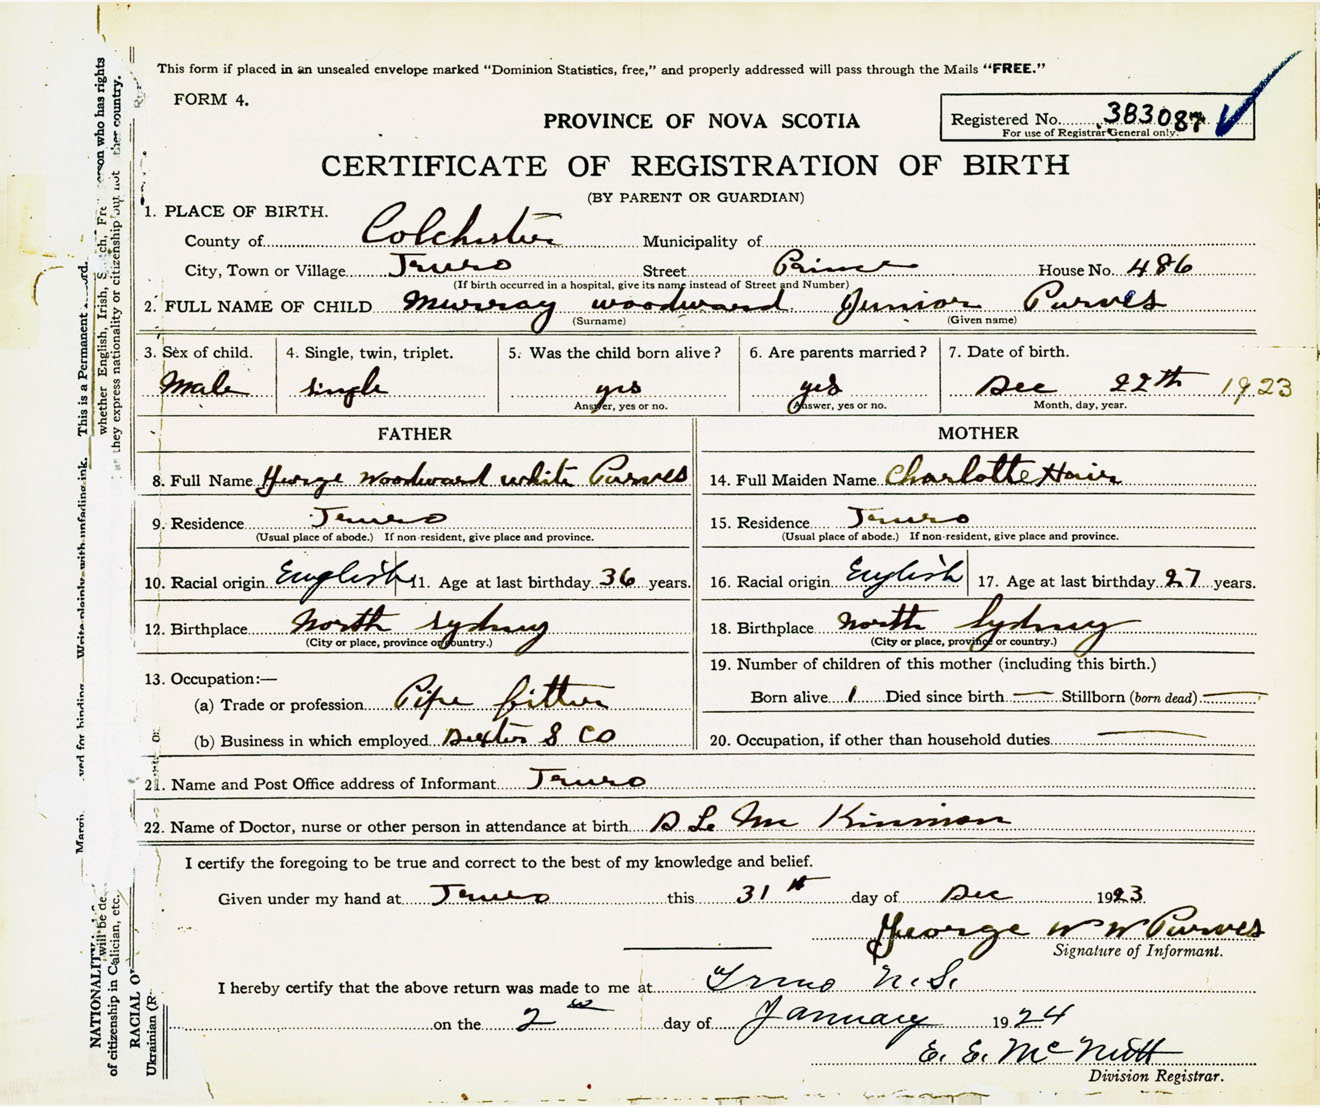 This form if placed in an unsealed envelope marked "Dominion Statistics, free," and properly addressed will pass through the Mails "FREE."
FORM 4.
Registered No. 383087
For use of Registrar General only.
PROVINCE OF NOVA SCOTIA
CERTIFICATE OF REGISTRATION OF BIRTH
(BY PARENT OR GUARDIAN)
1. PLACE OF BIRTH.
County of Colchester Municipality of
City, Town or Village Truro Street Prince House No. 486
(If birth occurred in a hospital, give its name instead of Street and Number)
2. FULL NAME OF CHILD Murray woodward Junior Purves
(Surname) (Given name)
3. Sex of child. 4. Single, twin, triplet. 5. Was the child born alive? 6. Are parents married? 7. Date of birth.
Male single yes yes Dec 22th 1923
Answer, yes or no. Answer, yes or no. Month, day, year.
FATHER MOTHER
8. Full Name George Woodward white Purves 14. Full Maiden Name Charlotte Hair
9. Residence Truro 15. Residence Truro
(Usual place of abode.) If non-resident, give place and province. (Usual place of abode.) If non-resident, give place and province.
10. Racial origin English 11. Age at last birthday 36 years. 16. Racial origin English 17. Age at last birthday 27 years.
12. Birthplace North Sydney 18. Birthplace North Sydney
(City or place, province or country.) (City or place, province or country.)
19. Number of children of this mother (including this birth.)
13. Occupation:—
(a) Trade or profession Pipe fitter Born alive 1 Died since birth — Stillborn (born dead) —
(b) Business in which employed Dexter & CO 20. Occupation, if other than household duties —
21. Name and Post Office address of Informant Truro
22. Name of Doctor, nurse or other person in attendance at birth Mc Kinnon
I certify the foregoing to be true and correct to the best of my knowledge and belief.
Given under my hand at Truro this 31st day of Dec 1923
George W W Purves
Signature of Informant.
I hereby certify that the above return was made to me at Truro N.S.
on the 2nd day of January 1924
E. E. McNutt
Division Registrar.